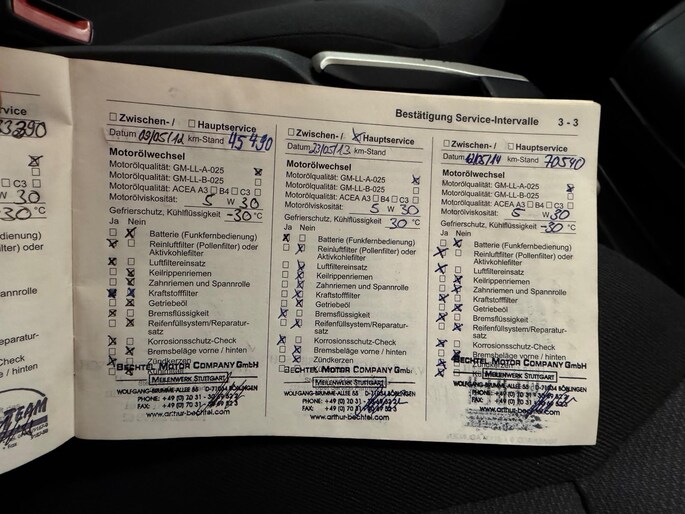 Bestätigung Service-Intervalle 3 - 3
rvice
33290
C3
W 30
-30 °C
dienung)
lter) oder
annrolle
eparatur-
Check
hinten
TEAM
Zwischen- / Hauptservice
Datum 09/05/12 km-Stand 45490
Motorölwechsel
Motorölqualität: GM-LL-A-025
Motorölqualität: GM-LL-B-025
Motorölqualität: ACEA A3 B4 C3
Motorölviskosität: 5 W 30
Gefrierschutz, Kühlflüssigkeit -30 °C
Ja Nein
Batterie (Funkfernbedienung)
Reinluftfilter (Pollenfilter) oder
Aktivkohlefilter
Luftfiltereinsatz
Keilrippenriemen
Zahnriemen und Spannrolle
Kraftstofffilter
Getriebeöl
Bremsflüssigkeit
Reifenfüllsystem/Reparatur-
satz
Korrosionsschutz-Check
Bremsbeläge vorne / hinten
Zündkerzen
BECHTEL MOTOR COMPANY GmbH
MEILENWERK STUTTGART
WOLFGANG-BRUMME-ALLEE 55 D-71034 BÖBLINGEN
PHONE: +49 (0) 70 31 -
FAX: +49 (0) 70 31 -
www.arthur-bechtel.com
Zwischen- / Hauptservice
Datum 23/05/13 km-Stand
Motorölwechsel
Motorölqualität: GM-LL-A-025
Motorölqualität: GM-LL-B-025
Motorölqualität: ACEA A3 B4 C3
Motorölviskosität: 5 W 30
Gefrierschutz, Kühlflüssigkeit 30 °C
Ja Nein
Batterie (Funkfernbedienung)
Reinluftfilter (Pollenfilter) oder
Aktivkohlefilter
Luftfiltereinsatz
Keilrippenriemen
Zahnriemen und Spannrolle
Kraftstofffilter
Getriebeöl
Bremsflüssigkeit
Reifenfüllsystem/Reparatur-
satz
Korrosionsschutz-Check
Bremsbeläge vorne / hinten
Zündkerzen
BECHTEL MOTOR COMPANY GmbH
MEILENWERK STUTTGART
WOLFGANG-BRUMME-ALLEE 55 D-71034 BÖBLINGEN
PHONE: +49 (0) 70 31 -
FAX: +49 (0) 70 31 -
www.arthur-bechtel.com
Zwischen- / Hauptservice
Datum /05/14 km-Stand 70540
Motorölwechsel
Motorölqualität: GM-LL-A-025
Motorölqualität: GM-LL-B-025
Motorölqualität: ACEA A3 B4 C3
Motorölviskosität: 5 W 30
Gefrierschutz, Kühlflüssigkeit -30 °C
Ja Nein
Batterie (Funkfernbedienung)
Reinluftfilter (Pollenfilter) oder
Aktivkohlefilter
Luftfiltereinsatz
Keilrippenriemen
Zahnriemen und Spannrolle
Kraftstofffilter
Getriebeöl
Bremsflüssigkeit
Reifenfüllsystem/Reparatur-
satz
Korrosionsschutz-Check
Bremsbeläge vorne / hinten
BECHTEL MOTOR COMPANY GmbH
MEILENWERK STUTTGART
WOLFGANG-BRUMME-ALLEE 55 D-71034 BÖBLINGEN
PHONE: +49 (0) 70 31 -
FAX: +49 (0) 70 31 -